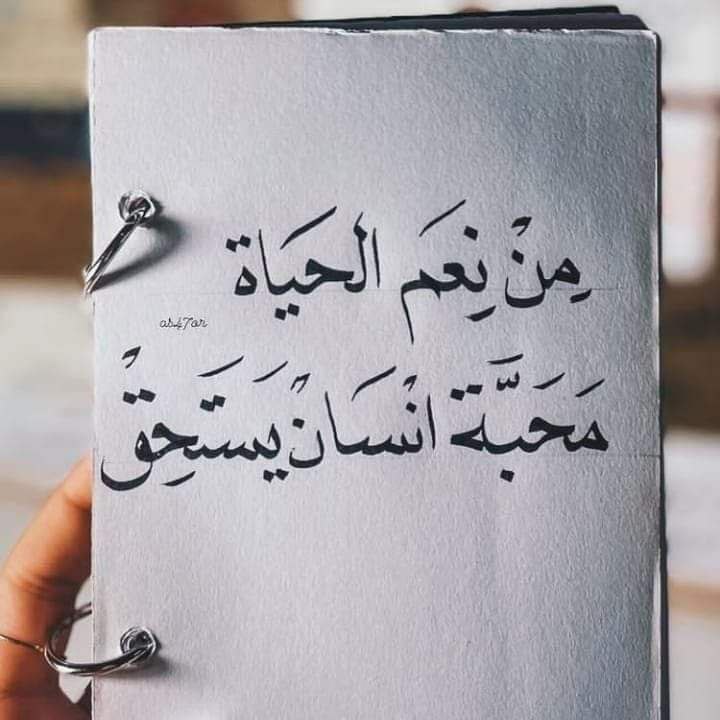 مِنْ نِعَم الحَيَاة
as47ar
مَحَبَّة انْسَانْ يَسْتَحِقْ